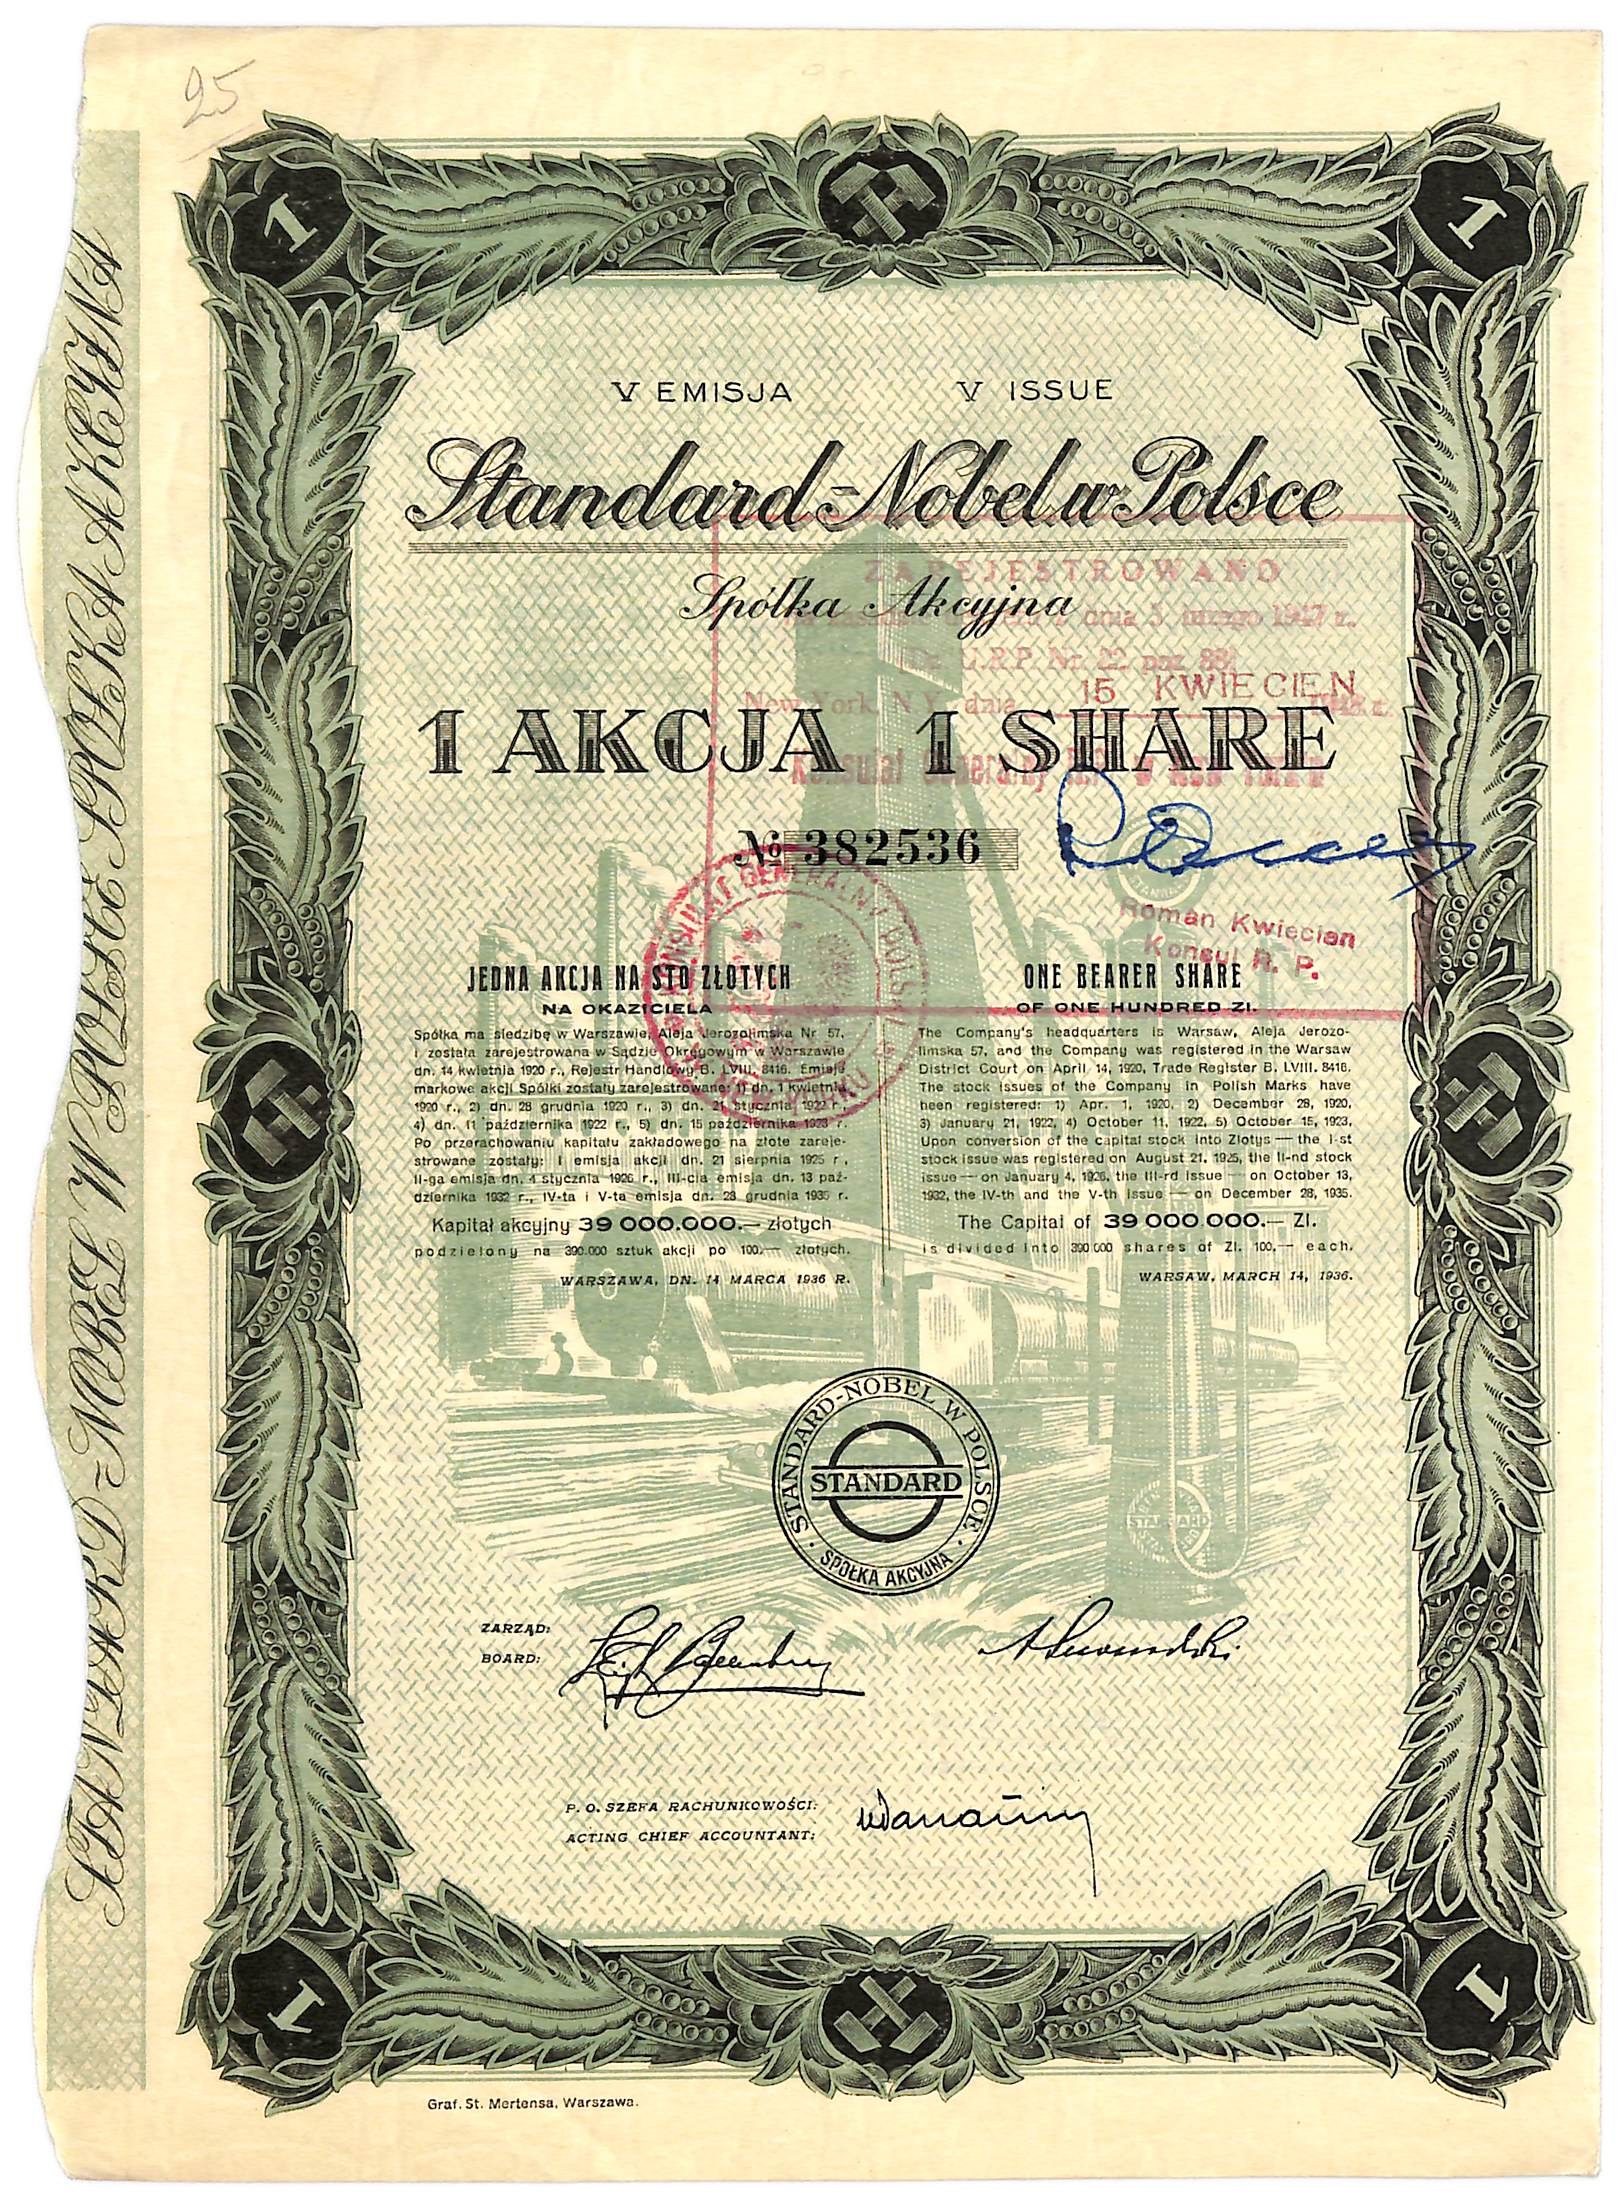 25
1
1
V EMISJA V ISSUE
Standard-Nobel w Polsce
Spółka Akcyjna
ZAREJESTROWANO
dnia 3 lutego 1947 r.
U.R.P. Nr. 22 poz. 88
New York, N.Y. dnia 15 KWIECIEN
1 AKCJA 1 SHARE
Konsulat Generalny R.P. w New Yorku
№ 382536
KONSULAT GENERALNY POLSKI
W NEW YORKU
Roman Kwiecien
Konsul R. P.
JEDNA AKCJA NA STO ZŁOTYCH
NA OKAZICIELA
Spółka ma siedzibę w Warszawie, Aleja Jerozolimska Nr 57,
i została zarejestrowana w Sądzie Okręgowym w Warszawie
dn. 14 kwietnia 1920 r., Rejestr Handlowy B. LVIII. 8416. Emisje
markowe akcji Spółki zostały zarejestrowane: 1) dn. 1 kwietnia
1920 r., 2) dn. 28 grudnia 1920 r., 3) dn. 21 stycznia 1922 r.,
4) dn. 11 października 1922 r., 5) dn. 15 października 1923 r.
Po przerachowaniu kapitału zakładowego na złote zareje-
strowane zostały: I emisja akcji dn. 21 sierpnia 1925 r.,
II-ga emisja dn. 4 stycznia 1926 r., III-cia emisja dn. 13 paź-
dziernika 1932 r., IV-ta i V-ta emisja dn. 28 grudnia 1935 r.
Kapitał akcyjny 39 000.000.— złotych
podzielony na 390.000 sztuk akcji po 100.— złotych.
WARSZAWA, DN. 14 MARCA 1936 R.
ONE BEARER SHARE
OF ONE HUNDRED Zl.
The Company's headquarters is Warsaw, Aleja Jerozo-
limska 57, and the Company was registered in the Warsaw
District Court on April 14, 1920, Trade Register B. LVIII. 8416.
The stock issues of the Company in Polish Marks have
been registered: 1) Apr. 1, 1920, 2) December 28, 1920,
3) January 21, 1922, 4) October 11, 1922, 5) October 15, 1923.
Upon conversion of the capital stock into Zlotys — the I-st
stock issue was registered on August 21, 1925, the II-nd stock
issue — on January 4, 1926, the III-rd issue — on October 13,
1932, the IV-th and the V-th issue — on December 28, 1935.
The Capital of 39 000 000.— Zl.
is divided into 390 000 shares of Zl. 100.— each.
WARSAW, MARCH 14, 1936.
STANDARD-NOBEL W POLSCE
STANDARD
SPÓŁKA AKCYJNA
STANDARD
ZARZĄD:
BOARD:
P. O. SZEFA RACHUNKOWOŚCI:
ACTING CHIEF ACCOUNTANT:
1
1
Graf. St. Mertensa, Warszawa.
STANDARD-NOBEL W POLSCE SPÓŁKA AKCYJNA